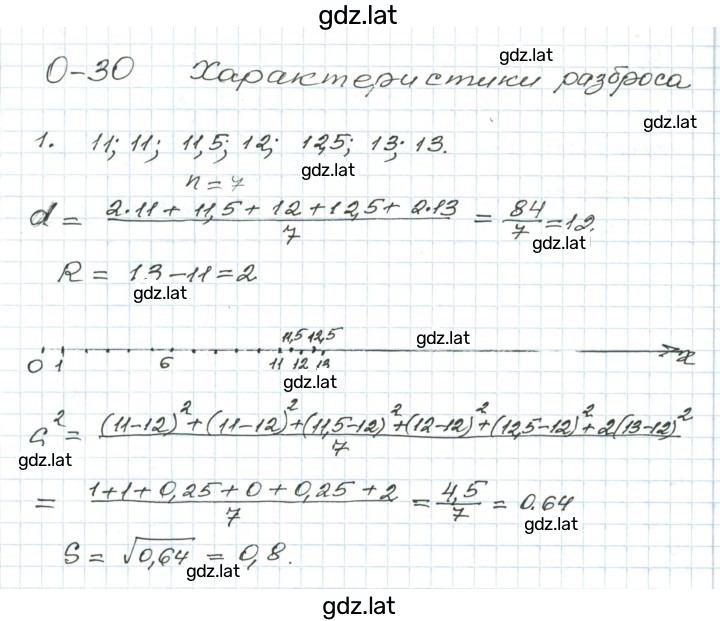 gdz.lat
gdz.lat
О-30 Характеристики разброса
gdz.lat
1. 11; 11; 11,5; 12; 12,5; 13; 13.
gdz.lat
n = 7
d = (2·11 + 11,5 + 12 + 12,5 + 2·13)/7 = 84/7 = 12.
gdz.lat
R = 13 − 11 = 2
gdz.lat
11,5 12,5
gdz.lat
0 1 6 11 12 13 x
gdz.lat
S² = ((11−12)² + (11−12)² + (11,5−12)² + (12−12)² + (12,5−12)² + 2(13−12)²)/7
gdz.lat
= (1 + 1 + 0,25 + 0 + 0,25 + 2)/7 = 4,5/7 = 0.64
gdz.lat
S = √0,64 = 0,8.
gdz.lat
gdz.lat